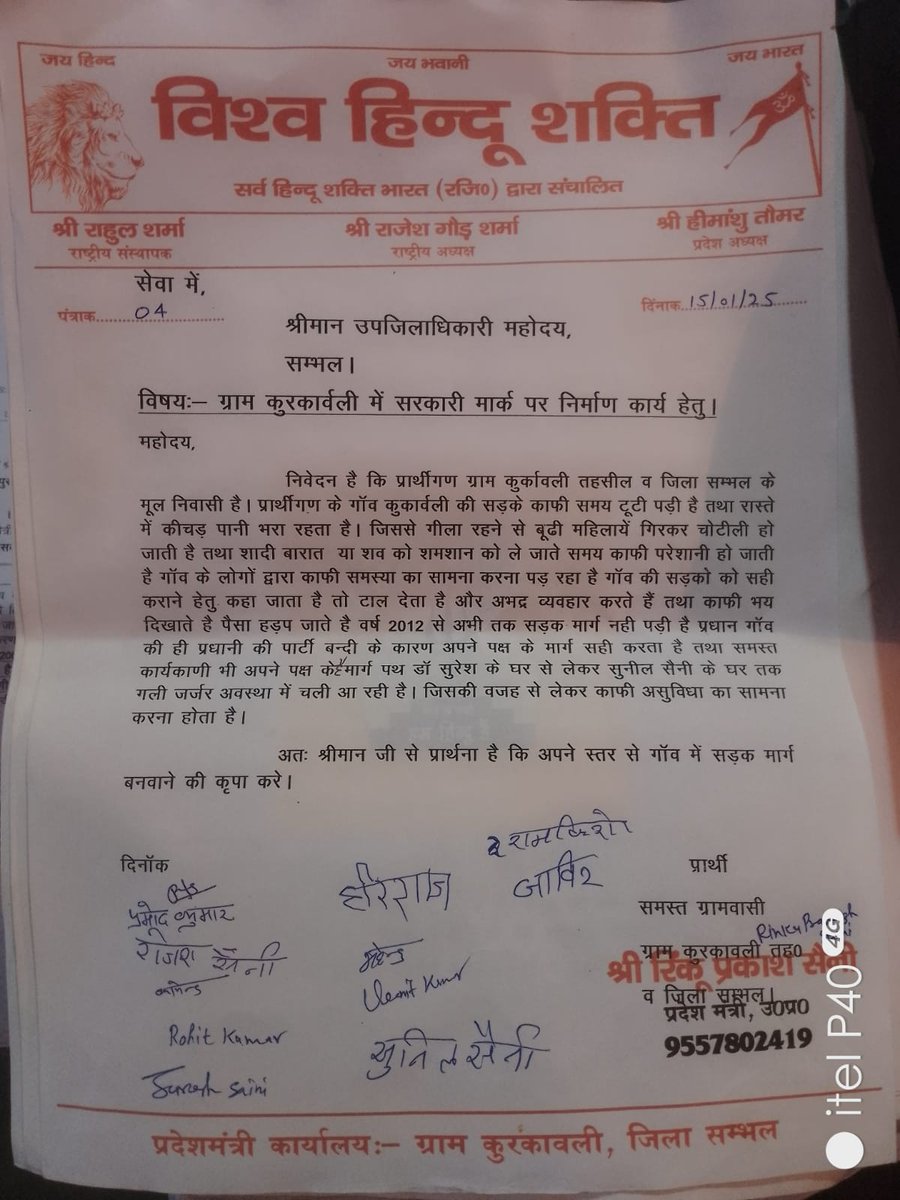 जय हिन्द जय भवानी जय भारत
विश्व हिन्दू शक्ति
ॐ
सर्व हिन्दू शक्ति भारत (रजि०) द्वारा संचालित
श्री राहुल शर्मा श्री राजेश गौड़ शर्मा श्री हीमांशु तौमर
राष्ट्रीय संस्थापक राष्ट्रीय अध्यक्ष प्रदेश अध्यक्ष
सेवा में,
पंत्राक......04............ दिंनाक..15/01/25......
श्रीमान उपजिलाधिकारी महोदय,
सम्भल।
विषयः– ग्राम कुरकार्वली में सरकारी मार्क पर निर्माण कार्य हेतु।
महोदय,
निवेदन है कि प्रार्थीगण ग्राम कुर्कावली तहसील व जिला सम्भल के
मूल निवासी है। प्रार्थीगण के गॉव कुकार्वली की सड़के काफी समय टूटी पड़ी है तथा रास्ते
में कीचड़ पानी भरा रहता है। जिससे गीला रहने से बूढी महिलायें गिरकर चोटीली हो
जाती है तथा शादी बारात या शव को शमशान को ले जाते समय काफी परेशानी हो जाती
है गॉव के लोगों द्वारा काफी समस्या का सामना करना पड़ रहा है गॉव की सड़को को सही
कराने हेतु कहा जाता है तो टाल देता है और अभद्र व्यवहार करते हैं तथा काफी भय
दिखाते है पैसा हड़प जाते है वर्ष 2012 से अभी तक सड़क मार्ग नही पड़ी है प्रधान गॉव
की ही प्रधानी की पार्टी बन्दी के कारण अपने पक्ष के मार्ग सही करता है तथा समस्त
कार्यकाणी भी अपने पक्ष के मार्ग पथ डॉ सुरेश के घर से लेकर सुनील सैनी के घर तक
गली जर्जर अवस्था में चली आ रही है। जिसकी वजह से लेकर काफी असुविधा का सामना
करना होता है।
अतः श्रीमान जी से प्रार्थना है कि अपने स्तर से गॉव में सड़क मार्ग
बनवाने की कृपा करे।
दिनॉक प्रार्थी
प्रमोद कुमार
समस्त ग्रामवासी
ग्राम कुरकावली तह०
श्री रिंकू प्रकाश सैनी
व जिला सम्भल।
प्रदेश मंत्री, उ0प्र0
Rohit Kumar
सुनिल सैनी
9557802419
Suresh Saini
प्रदेशमंत्री कार्यालयः– ग्राम कुरकावली, जिला सम्भल
itel P40 4G